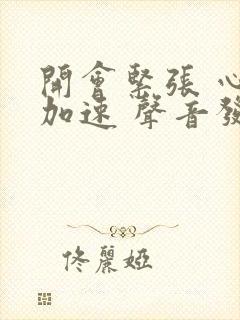 開會緊張 心
加速 聲音發
佟麗婭